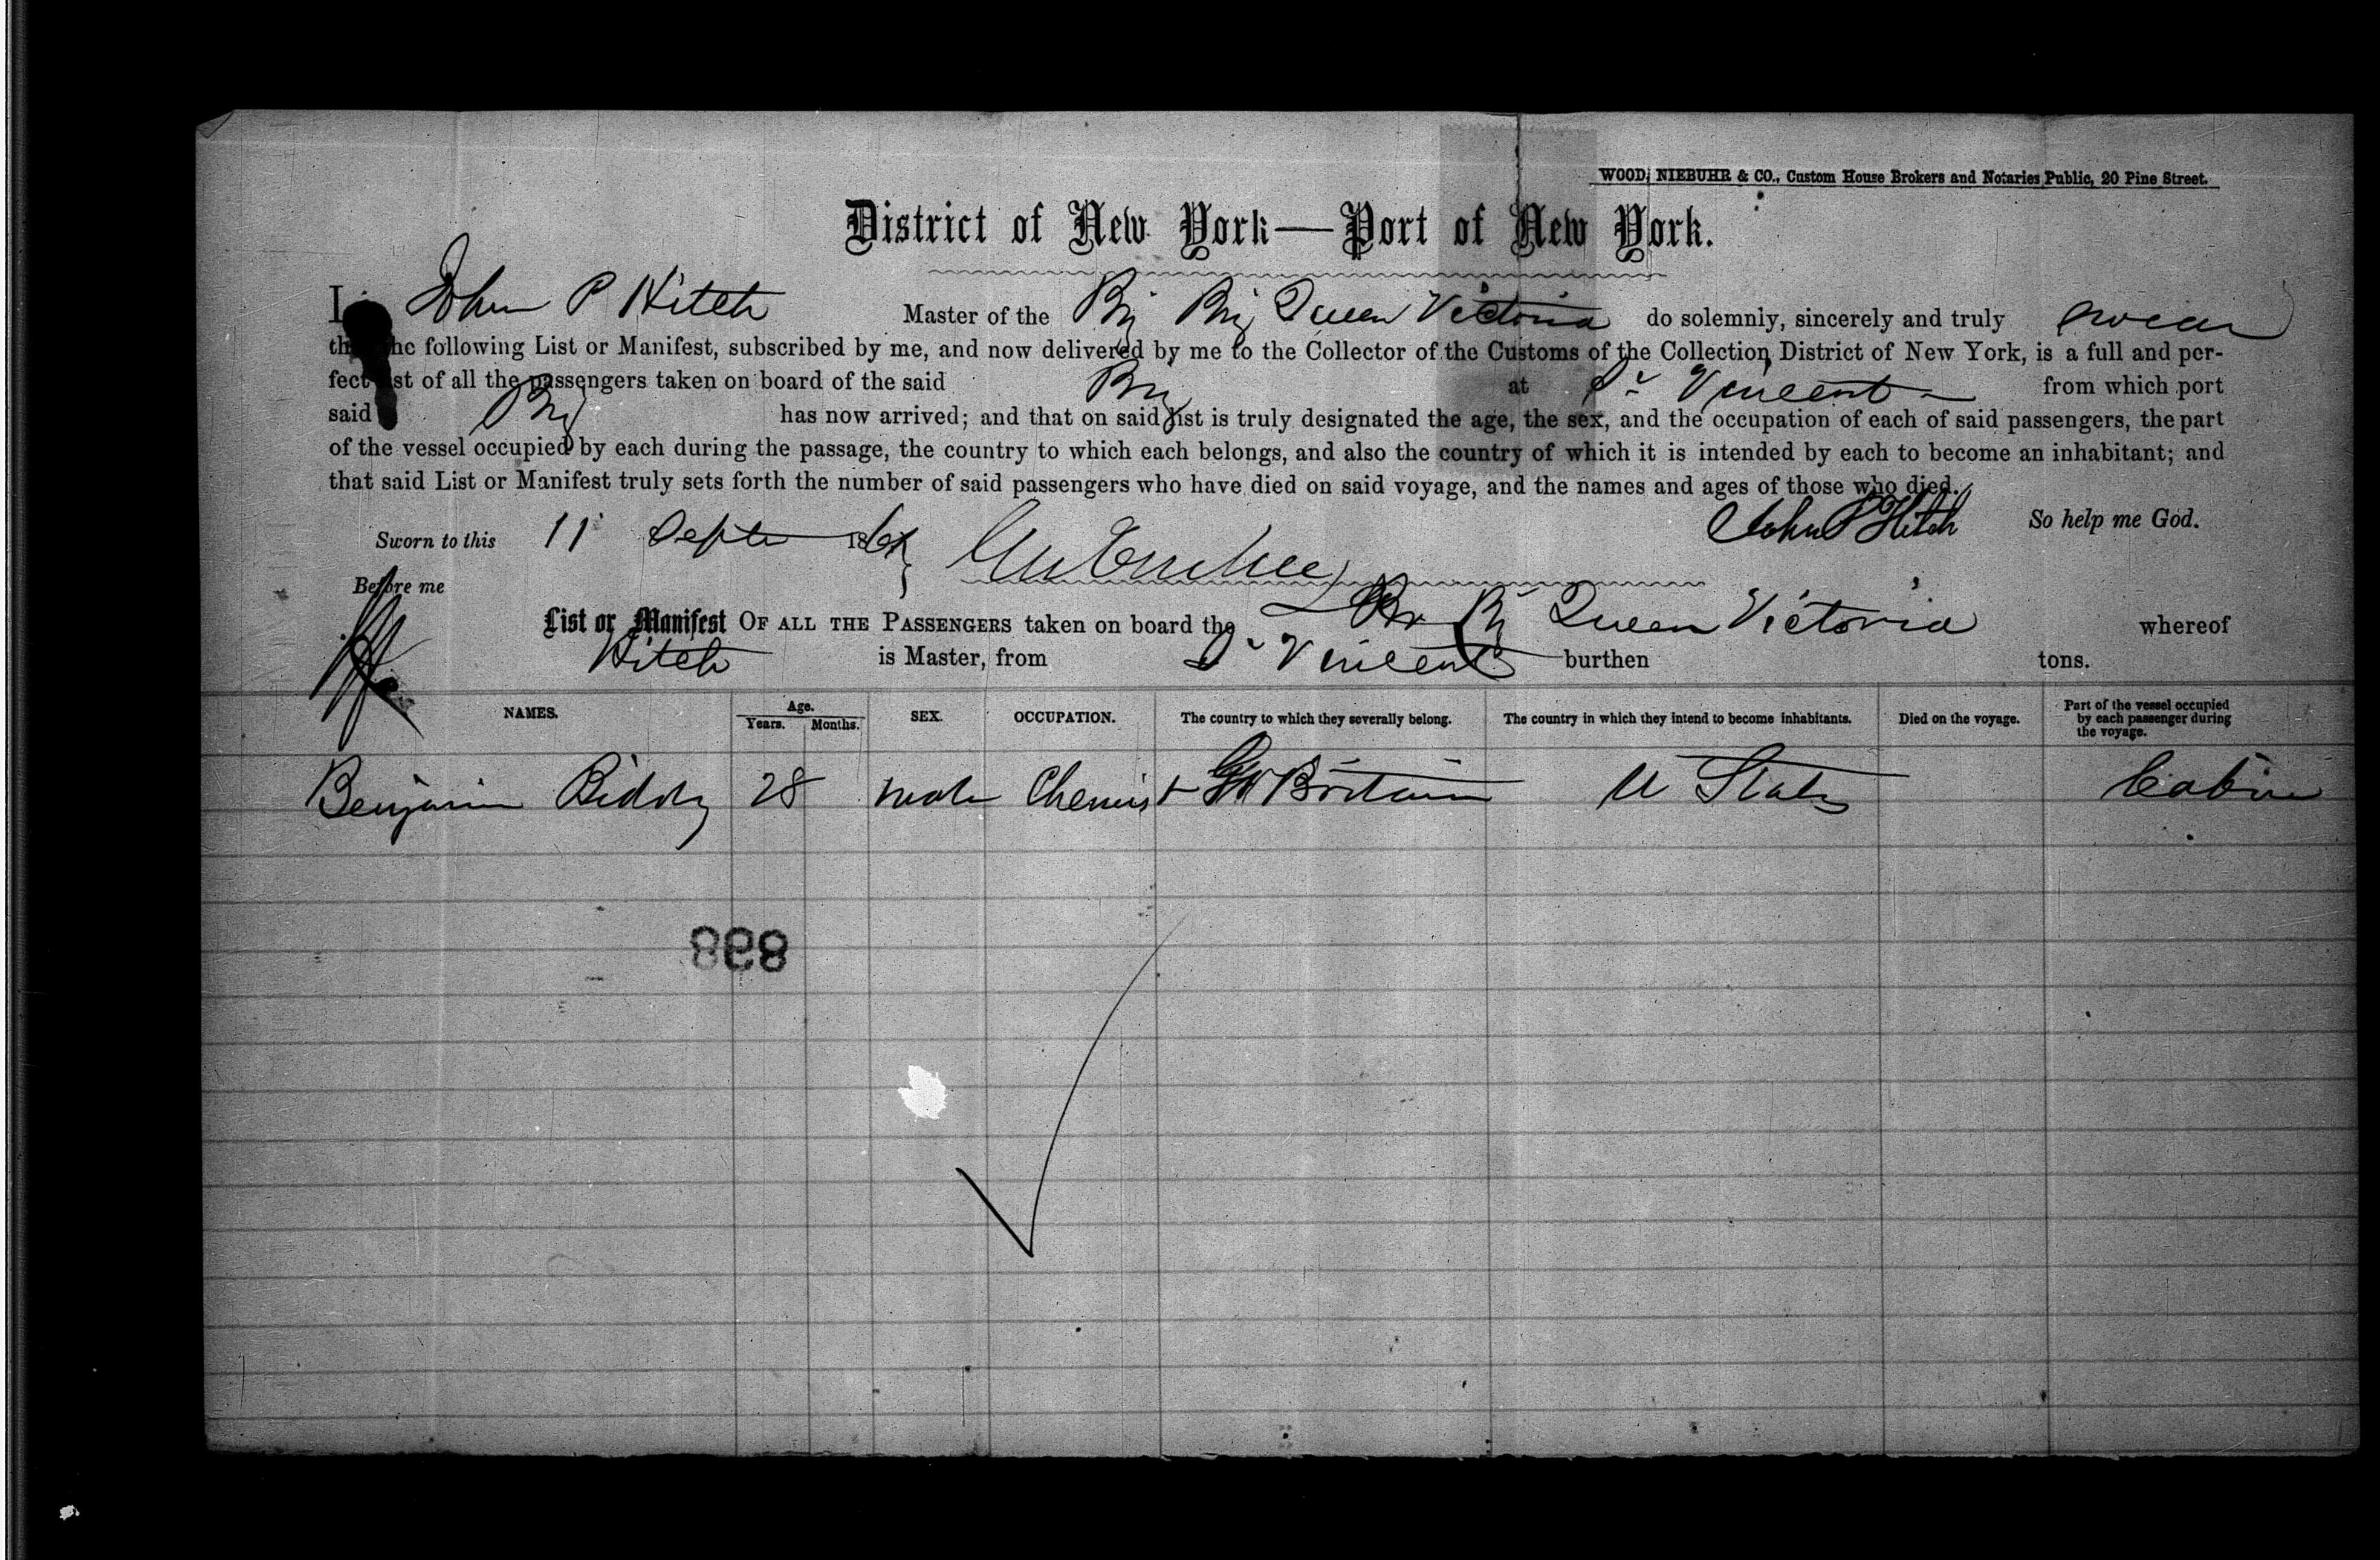 WOOD, NIEBUHR & CO., Custom House Brokers and Notaries Public, 20 Pine Street.
District of New York—Port of New York.
I, John P Hitch Master of the Br Brig Queen Victoria do solemnly, sincerely and truly swear
that the following List or Manifest, subscribed by me, and now delivered by me to the Collector of the Customs of the Collection District of New York, is a full and per-
fect list of all the passengers taken on board of the said Brig at St Vincent from which port
said Brig has now arrived; and that on said list is truly designated the age, the sex, and the occupation of each of said passengers, the part
of the vessel occupied by each during the passage, the country to which each belongs, and also the country of which it is intended by each to become an inhabitant; and
that said List or Manifest truly sets forth the number of said passengers who have died on said voyage, and the names and ages of those who died.
Sworn to this 11 Septr 186 John P Hitch So help me God.
Before me
List or Manifest OF ALL THE PASSENGERS taken on board the Br Bg Queen Victoria whereof
Hitch is Master, from St Vincent burthen tons.
NAMES. Age. Years. Months. SEX. OCCUPATION. The country to which they severally belong. The country in which they intend to become inhabitants. Died on the voyage. Part of the vessel occupied by each passenger during the voyage.
Benjamin 28 male Chemist Gt Britain U States Cabin